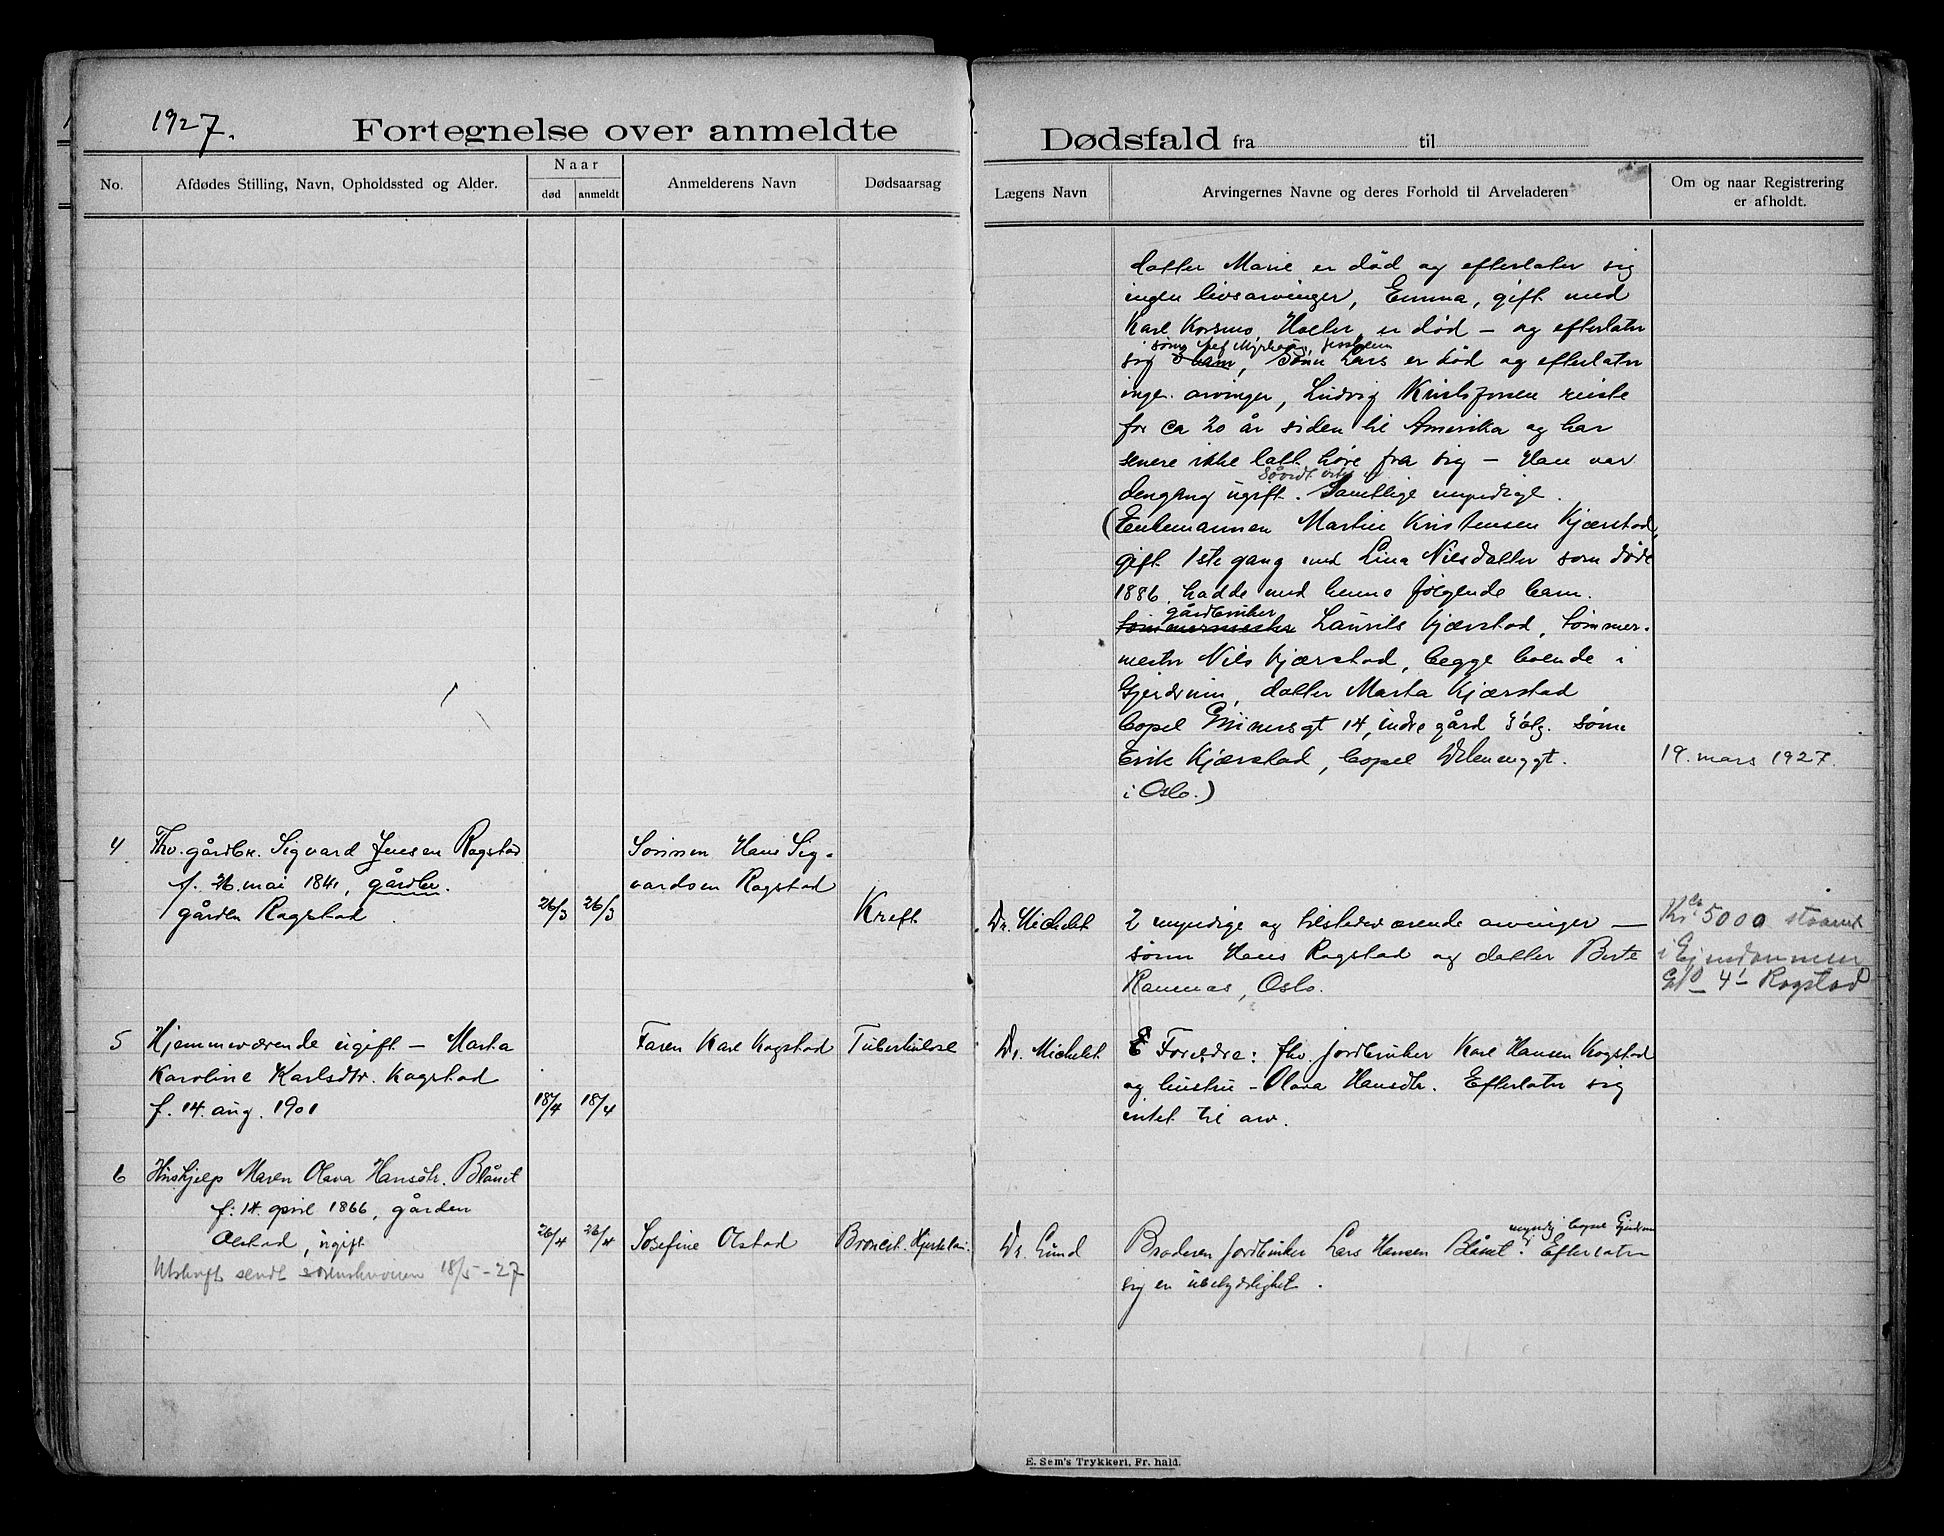 1927.
Fortegnelse over anmeldte
Dødsfald fra til
No.
Afdødes Stilling, Navn, Opholdssted og Alder.
Naar
død
anmeldt
Anmelderens Navn
Dødsaarsag
Lægens Navn
Arvingernes Navne og deres Forhold til Arveladeren
Om og naar Registrering
er afholdt.
datter Marie er død og efterlater sig
ingen livsarvinger, Emma, gift med
Karl Korsmo, Holter, er død - og efterlater
sønn
sig barn, Sønn Lars er død og efterlater
ingen arvinger, Ludvig Kristiansen reiste
for ca 20 år siden til Amerika og har
senere ikke latt høre fra sig - Han var
Såvidt vites er
dengang ugift. Samtlige myndige.
(Enkemannen Martin Kristensen Kjærstad,
gift 1ste gang med Lina Nilsdatter som døde
1886, hadde med henne følgende barn.
gårdbruker
tømmermester Laurits Kjærstad, tømmer-
mester Nils Kjærstad, begge boende i
Gjerdrum, datter Marta Kjærstad
bopel 14, indre gård 3 etg. sønn
Erik Kjærstad, bopel
i Oslo.)
19. mars 1927.
4
Fhv. gårdbr. Sigvard Jensen Ragstad
f. 26. mai 1841, gårdbr.
gården Ragstad
26/3
26/3
Sønnen Hans Sig-
vardsen Ragstad
Kreft
Dr. Michelet
2 myndige og tilstedeværende arvinger —
sønn Hans Ragstad og datter Berte
Ramnas, Oslo.
ca
Kr. 5000
i Eiendommen
4 Ragstad
5
Hjemmeværende ugift - Marta
Karoline Karlsdtr. Kogstad
f. 14. aug. 1901
18/4
18/4
Faren Karl Kogstad
Tuberkulose
Dr. Michelet
Foreldre: fhv. jordbruker Karl Hansen Kogstad
og hustru - Olava Hansdtr. Efterlater sig
intet til arv.
6
Hushjelp Maren Olava Hansdtr. Blånet
f. 14. april 1866, gården
Olstad, ugift
Utskrift sendt sorenskriveren 18/5-27
26/4
26/4
Josefine Olstad
Broncit. Hjertelam.
Dr. Lund
myndig bopel Gjerdrum
Broderen jordbruker Lars Hansen Blånet. Efterlater
sig en ubetydelighet.
E. Sem's Trykkeri, Fr. hald.